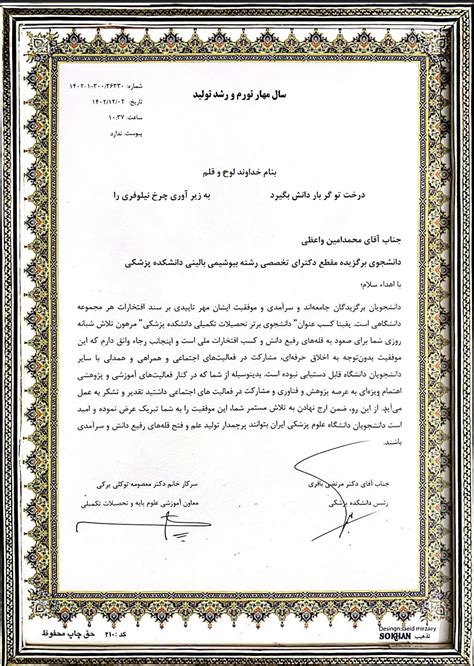 سال مهار تورم و رشد تولید
شماره: ۱۴۰۲-۱۰۳۰۰/۳۶۳۳۰
تاریخ: ۱۴۰۲/۱۲/۰۲
ساعت: ۱۰:۳۷
پیوست: ندارد
بنام خداوند لوح و قلم
درخت تو گر بار دانش بگیرد به زیر آوری چرخ نیلوفری را
جناب آقای محمدامین واعظی
دانشجوی برگزیده مقطع دکترای تخصصی رشته بیوشیمی بالینی دانشکده پزشکی
با اهداء سلام؛
دانشجویان برگزیدگان جامعه‌اند و سرآمدی و موفقیت ایشان مهر تاییدی بر سند افتخارات هر مجموعه
دانشگاهی است. یقینا کسب عنوان" دانشجوی برتر تحصیلات تکمیلی دانشکده پزشکی" مرهون تلاش شبانه
روزی شما برای صعود به قله‌های رفیع دانش و کسب افتخارات ملی است و اینجانب رجاء واثق دارم که این
موفقیت بدون‌توجه به اخلاق حرفه‌ای، مشارکت در فعالیت‌های اجتماعی و همراهی و همدلی با سایر
دانشجویان دانشگاه قابل دستیابی نبوده است. بدینوسیله از شما که در کنار فعالیت‌های آموزشی و پژوهشی
اهتمام ویژه‌ای به عرصه پژوهش و فناوری و مشارکت در فعالیت های اجتماعی داشتید تقدیر و تشکر به عمل
می‌آید. از این رو، ضمن ارج نهادن به تلاش مستمر شما، این موفقیت را به شما تبریک عرض نموده و امید
است دانشجویان دانشگاه علوم پزشکی ایران بتوانند پرچمدار تولید علم و فتح قله‌های رفیع دانش و سرآمدی
باشند.
جناب آقای دکتر مرتضی باقری
رئیس دانشکده پزشکی
سرکار خانم دکتر معصومه توکلی برکی
معاون آموزشی علوم پایه و تحصیلات تکمیلی
Desingn:saeid mirzaey
تذهیب SOKHAN
کد: ۲۱۰ حق چاپ محفوظ